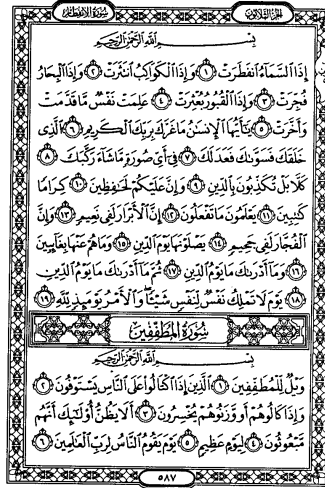 سُورَةُ الانفِطَار الجُزءُ الثَّلَاثُونَ
بِسْمِ اللَّهِ الرَّحْمَٰنِ الرَّحِيمِ
إِذَا السَّمَاءُ انفَطَرَتْ ١ وَإِذَا الْكَوَاكِبُ انتَثَرَتْ ٢ وَإِذَا الْبِحَارُ
فُجِّرَتْ ٣ وَإِذَا الْقُبُورُ بُعْثِرَتْ ٤ عَلِمَتْ نَفْسٌ مَّا قَدَّمَتْ
وَأَخَّرَتْ ٥ يَٰأَيُّهَا الْإِنسَٰنُ مَا غَرَّكَ بِرَبِّكَ الْكَرِيمِ ٦ الَّذِي
خَلَقَكَ فَسَوَّىٰكَ فَعَدَلَكَ ٧ فِي أَيِّ صُورَةٍ مَّا شَاءَ رَكَّبَكَ ٨
كَلَّا بَلْ تُكَذِّبُونَ بِالدِّينِ ٩ وَإِنَّ عَلَيْكُمْ لَحَٰفِظِينَ ١٠ كِرَامًا
كَٰتِبِينَ ١١ يَعْلَمُونَ مَا تَفْعَلُونَ ١٢ إِنَّ الْأَبْرَارَ لَفِي نَعِيمٍ ١٣ وَإِنَّ
الْفُجَّارَ لَفِي جَحِيمٍ ١٤ يَصْلَوْنَهَا يَوْمَ الدِّينِ ١٥ وَمَا هُمْ عَنْهَا بِغَائِبِينَ
١٦ وَمَا أَدْرَىٰكَ مَا يَوْمُ الدِّينِ ١٧ ثُمَّ مَا أَدْرَىٰكَ مَا يَوْمُ الدِّينِ
١٨ يَوْمَ لَا تَمْلِكُ نَفْسٌ لِّنَفْسٍ شَيْئًا وَالْأَمْرُ يَوْمَئِذٍ لِّلَّهِ ١٩
سُورَةُ المُطَفِّفِين
بِسْمِ اللَّهِ الرَّحْمَٰنِ الرَّحِيمِ
وَيْلٌ لِّلْمُطَفِّفِينَ ١ الَّذِينَ إِذَا اكْتَالُوا عَلَى النَّاسِ يَسْتَوْفُونَ ٢
وَإِذَا كَالُوهُمْ أَو وَّزَنُوهُمْ يُخْسِرُونَ ٣ أَلَا يَظُنُّ أُولَٰئِكَ أَنَّهُم
مَّبْعُوثُونَ ٤ لِيَوْمٍ عَظِيمٍ ٥ يَوْمَ يَقُومُ النَّاسُ لِرَبِّ الْعَٰلَمِينَ ٦
٥٨٧